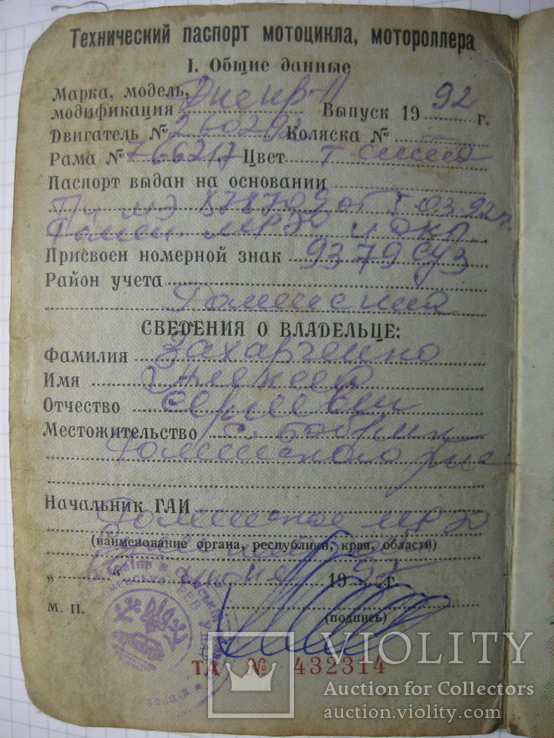 Технический паспорт мотоцикла, мотороллера
I. Общие данные
Марка, модель,
модификация Днепр-11 Выпуск 1992 г.
Двигатель № 260292 Коляска № —
Рама № 766217 Цвет т синий
Паспорт выдан на основании
878709 от 03.92 г.
Присвоен номерной знак 9379 СУЗ
Район учета
Роменский
СВЕДЕНИЯ О ВЛАДЕЛЬЦЕ:
Фамилия Захарченко
Имя Алексей
Отчество Сергеевич
Местожительство с. Бобрик
Роменского р-на
Начальник ГАИ
Роменское МРЭО
(наименование органа, республики, края, области)
„ “ июня 1992 г.
М. П.
(подпись)
ТА № 432314
VIOLITY
Auction for Collectors
auction.violity.com